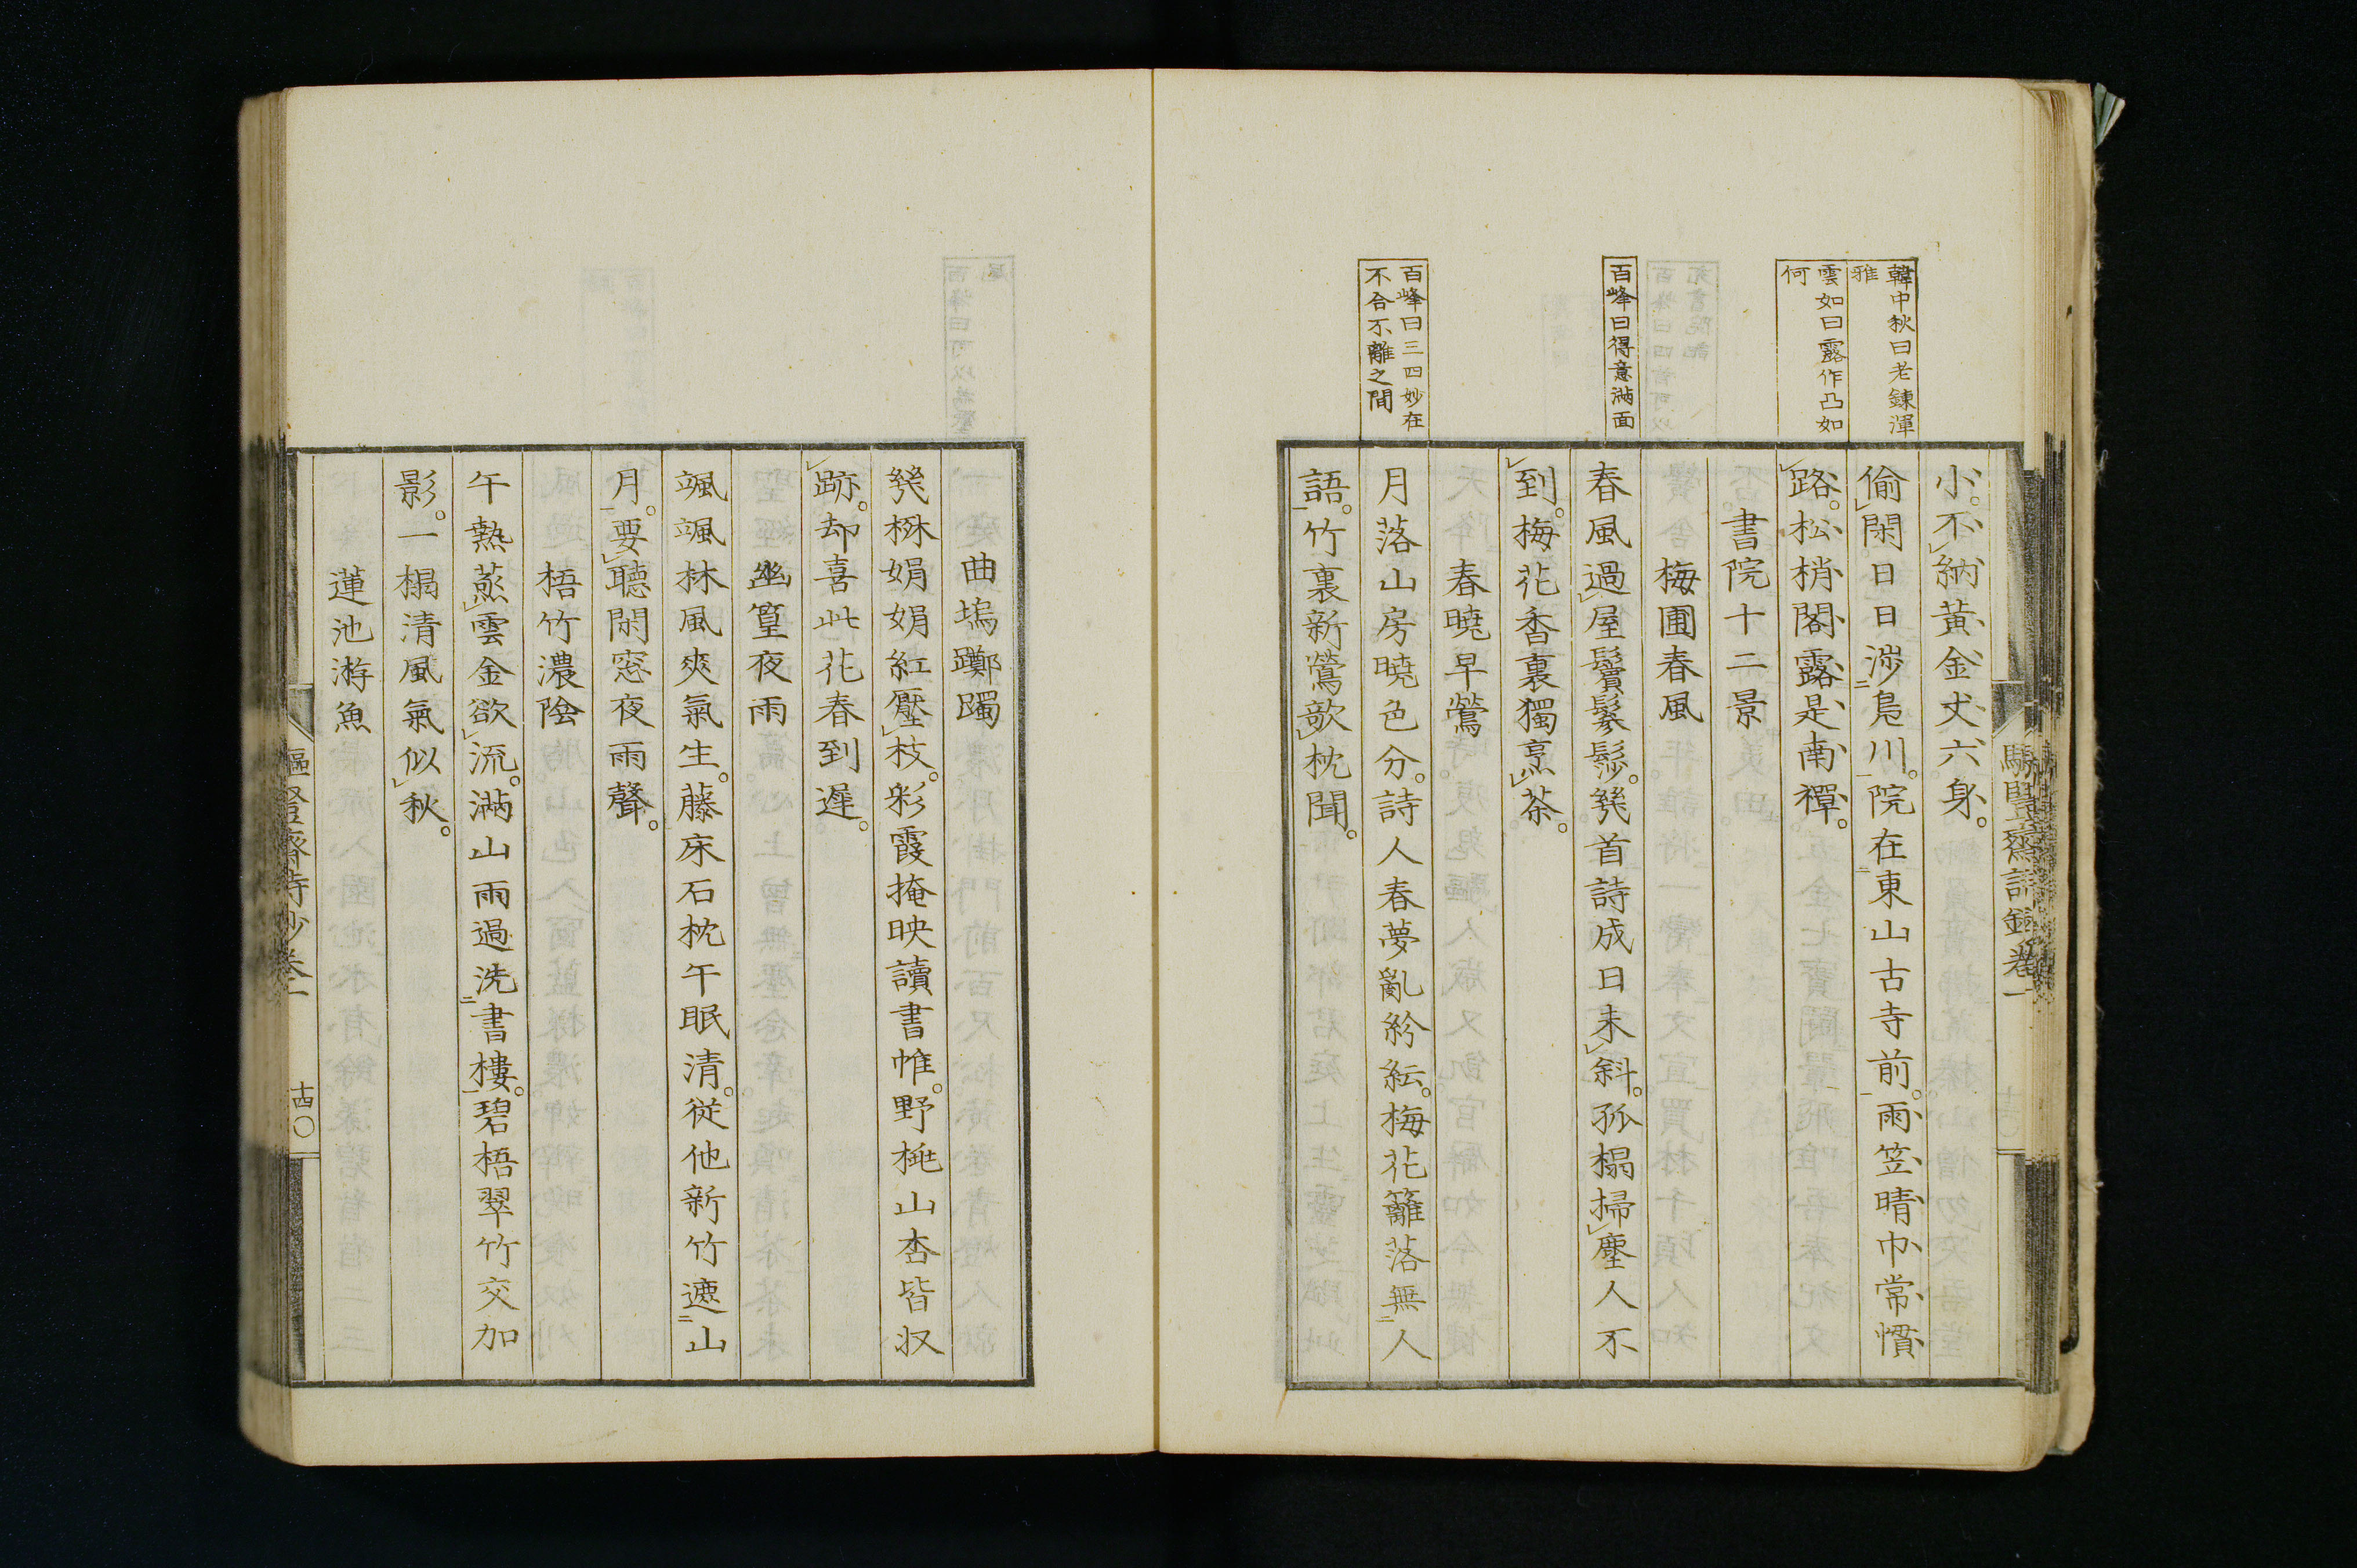 韓中秋曰老鍊渾
雅
雲如曰露作凸如
何
百峰曰得意滿面
百峰曰三四妙在
不合不離之間
小。不納黃金丈六身。
偷閑日日涉鳧川。院在東山古寺前。雨笠晴巾常慣
路。松梢閣露是南禪。
書院十二景
梅圃春風
春風過屋鬢鬖髿。幾首詩成日未斜。孤榻掃塵人不
到。梅花香裏獨烹茶。
春曉早鶯
月落山房曉色分。詩人春夢亂紛紜。梅花籬落無人
語。竹裏新鶯歌枕聞。
曲塢躑躅
幾株娟娟紅壓枝。彩霞掩映讀書帷。野桃山杏皆收
跡。却喜此花春到遲。
幽篁夜雨
颯颯林風爽氣生。藤床石枕午眠清。從他新竹遮山
月。要聽閑窓夜雨聲。
梧竹濃陰
午熱蒸雲金欲流。滿山雨過洗書樓。碧梧翠竹交加
影。一榻清風氣似秋。
蓮池游魚
十四